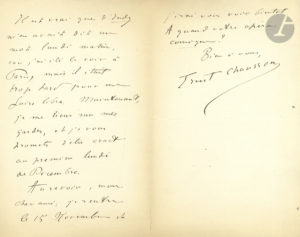 Il est vrai que d'Indy
m'en avait dit un
mot lundi matin,
où j'ai été le voir à
Paris, mais il était
trop tard pour une
soirée libre. Maintenant,
je me tiens sur mes
gardes, et je vous
promets d'être exact
au premier lundi
de Décembre.
Au revoir, mon
cher ami, je rentre
le 15 Novembre et
j'irai vous voir bientôt
A quand votre opéra
comique?
Bien à vous,
Ernest Chausson